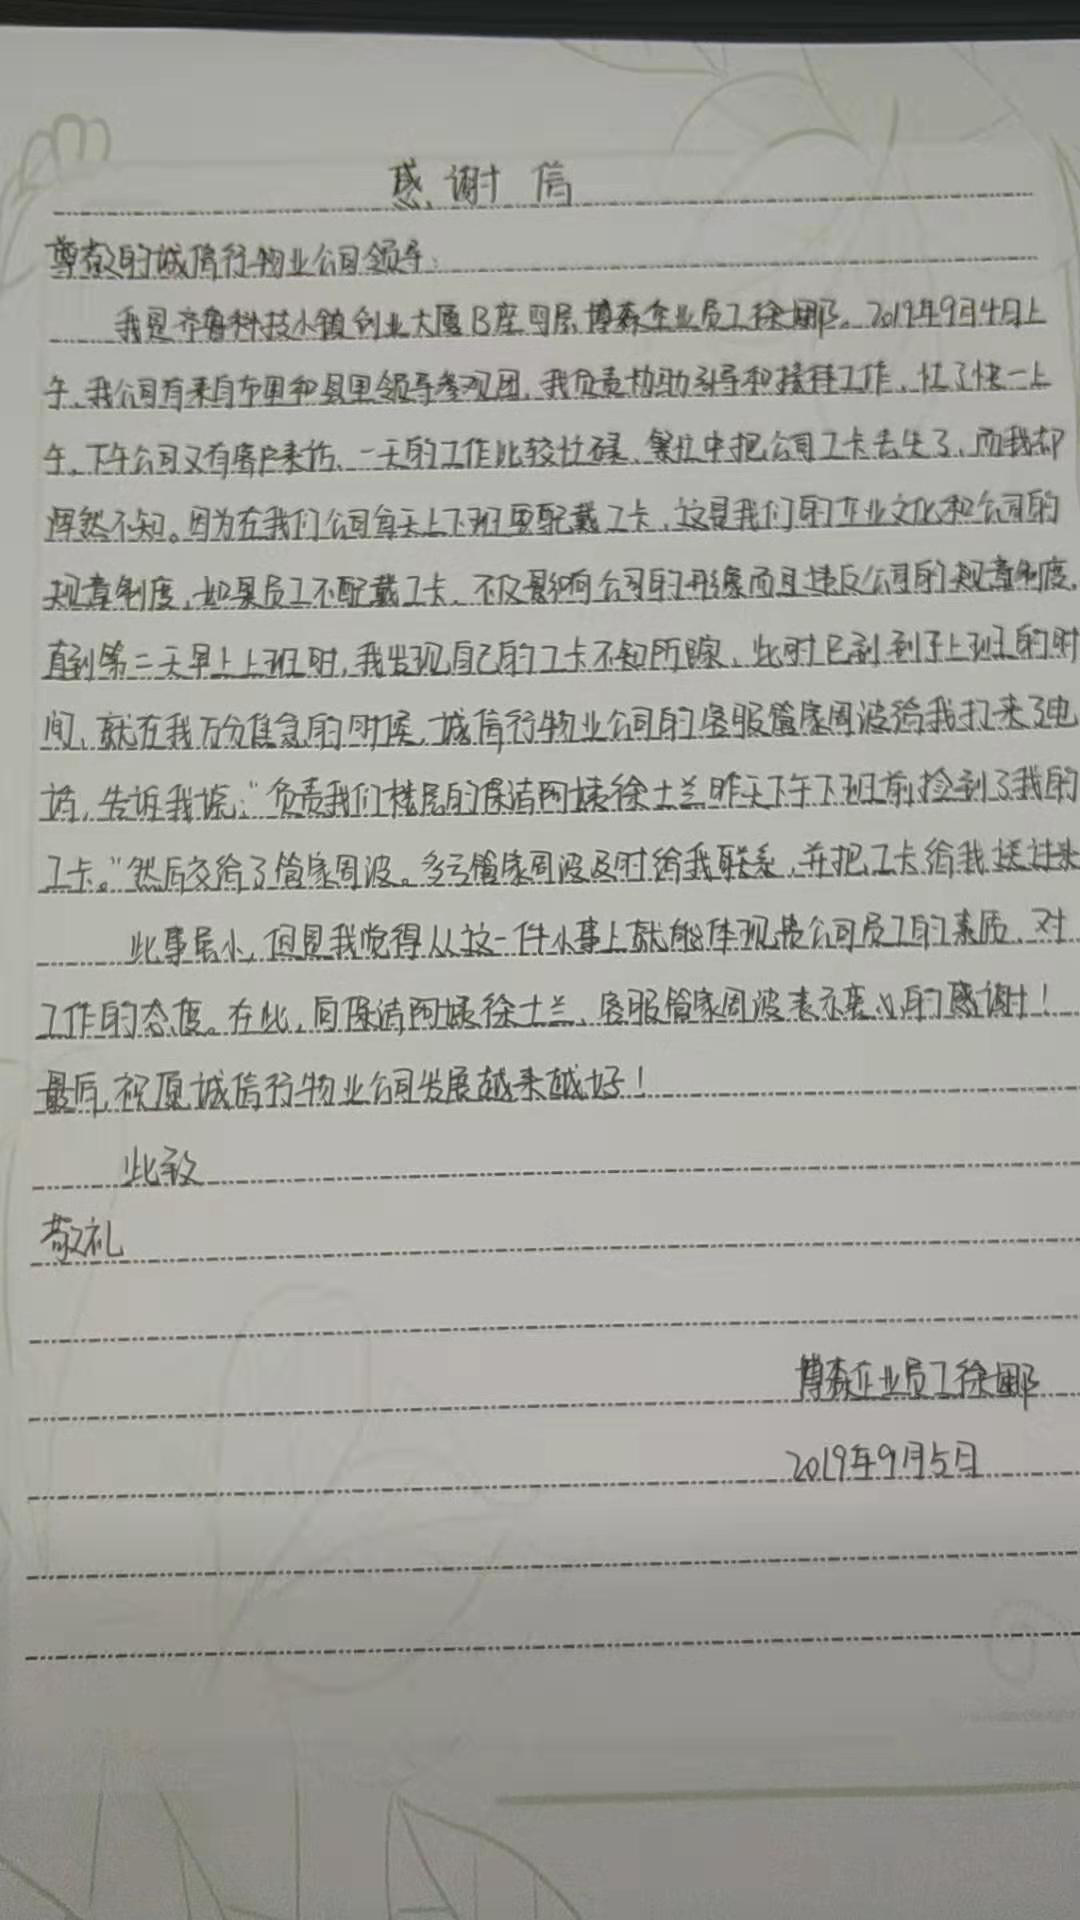 感谢信
尊敬的诚信行物业公司领导:
我是齐鲁科技小镇创业大厦B座四层博森企业员工徐娜。2019年9月4日上
午,我公司有来自市里和县里领导参观团,我负责协助引导和接待工作,忙了快一上
午。下午公司又有客户来访,一天的工作比较忙碌,繁忙中把公司工卡丢失了,而我却
浑然不知。因为在我们公司每天上下班要配戴工卡,这是我们的企业文化和公司的
规章制度,如果员工不配戴工卡,不仅影响公司的形象而且违反公司的规章制度,
直到第二天早上上班时,我发现自己的工卡不知所踪,此时已到了上班的时
间,就在我万分焦急的时候,诚信行物业公司的客服管家周波给我打来了电
话,告诉我说:“负责我们楼层的保洁阿姨徐士兰昨天下午下班前捡到了我的
工卡。”然后交给了管家周波。多亏管家周波及时给我联系,并把工卡给我送过来
此事虽小,但是我觉得从这一件小事上就能体现贵公司员工的素质、对
工作的态度。在此,向保洁阿姨徐士兰、客服管家周波表示衷心的感谢!
最后,祝愿诚信行物业公司发展越来越好!
此致
敬礼
博森企业员工徐娜
2019年9月5日